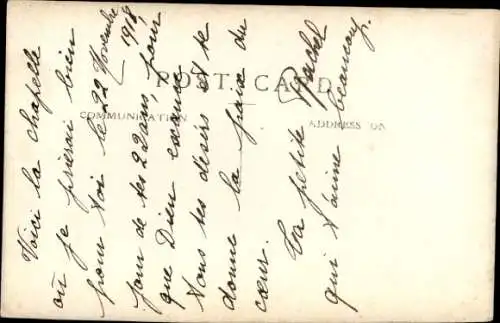 POST CARD
COMMUNICATION
ADDRESS ON
Voici la chapelle
où je prierai bien
pour toi le 22 Novembre 1918
jour de tes 22 ans, pour
que Dieu exauce
tous tes désirs et te
donne la paix du
cœur.
Ta petite Rachel
qui t'aime beaucoup.